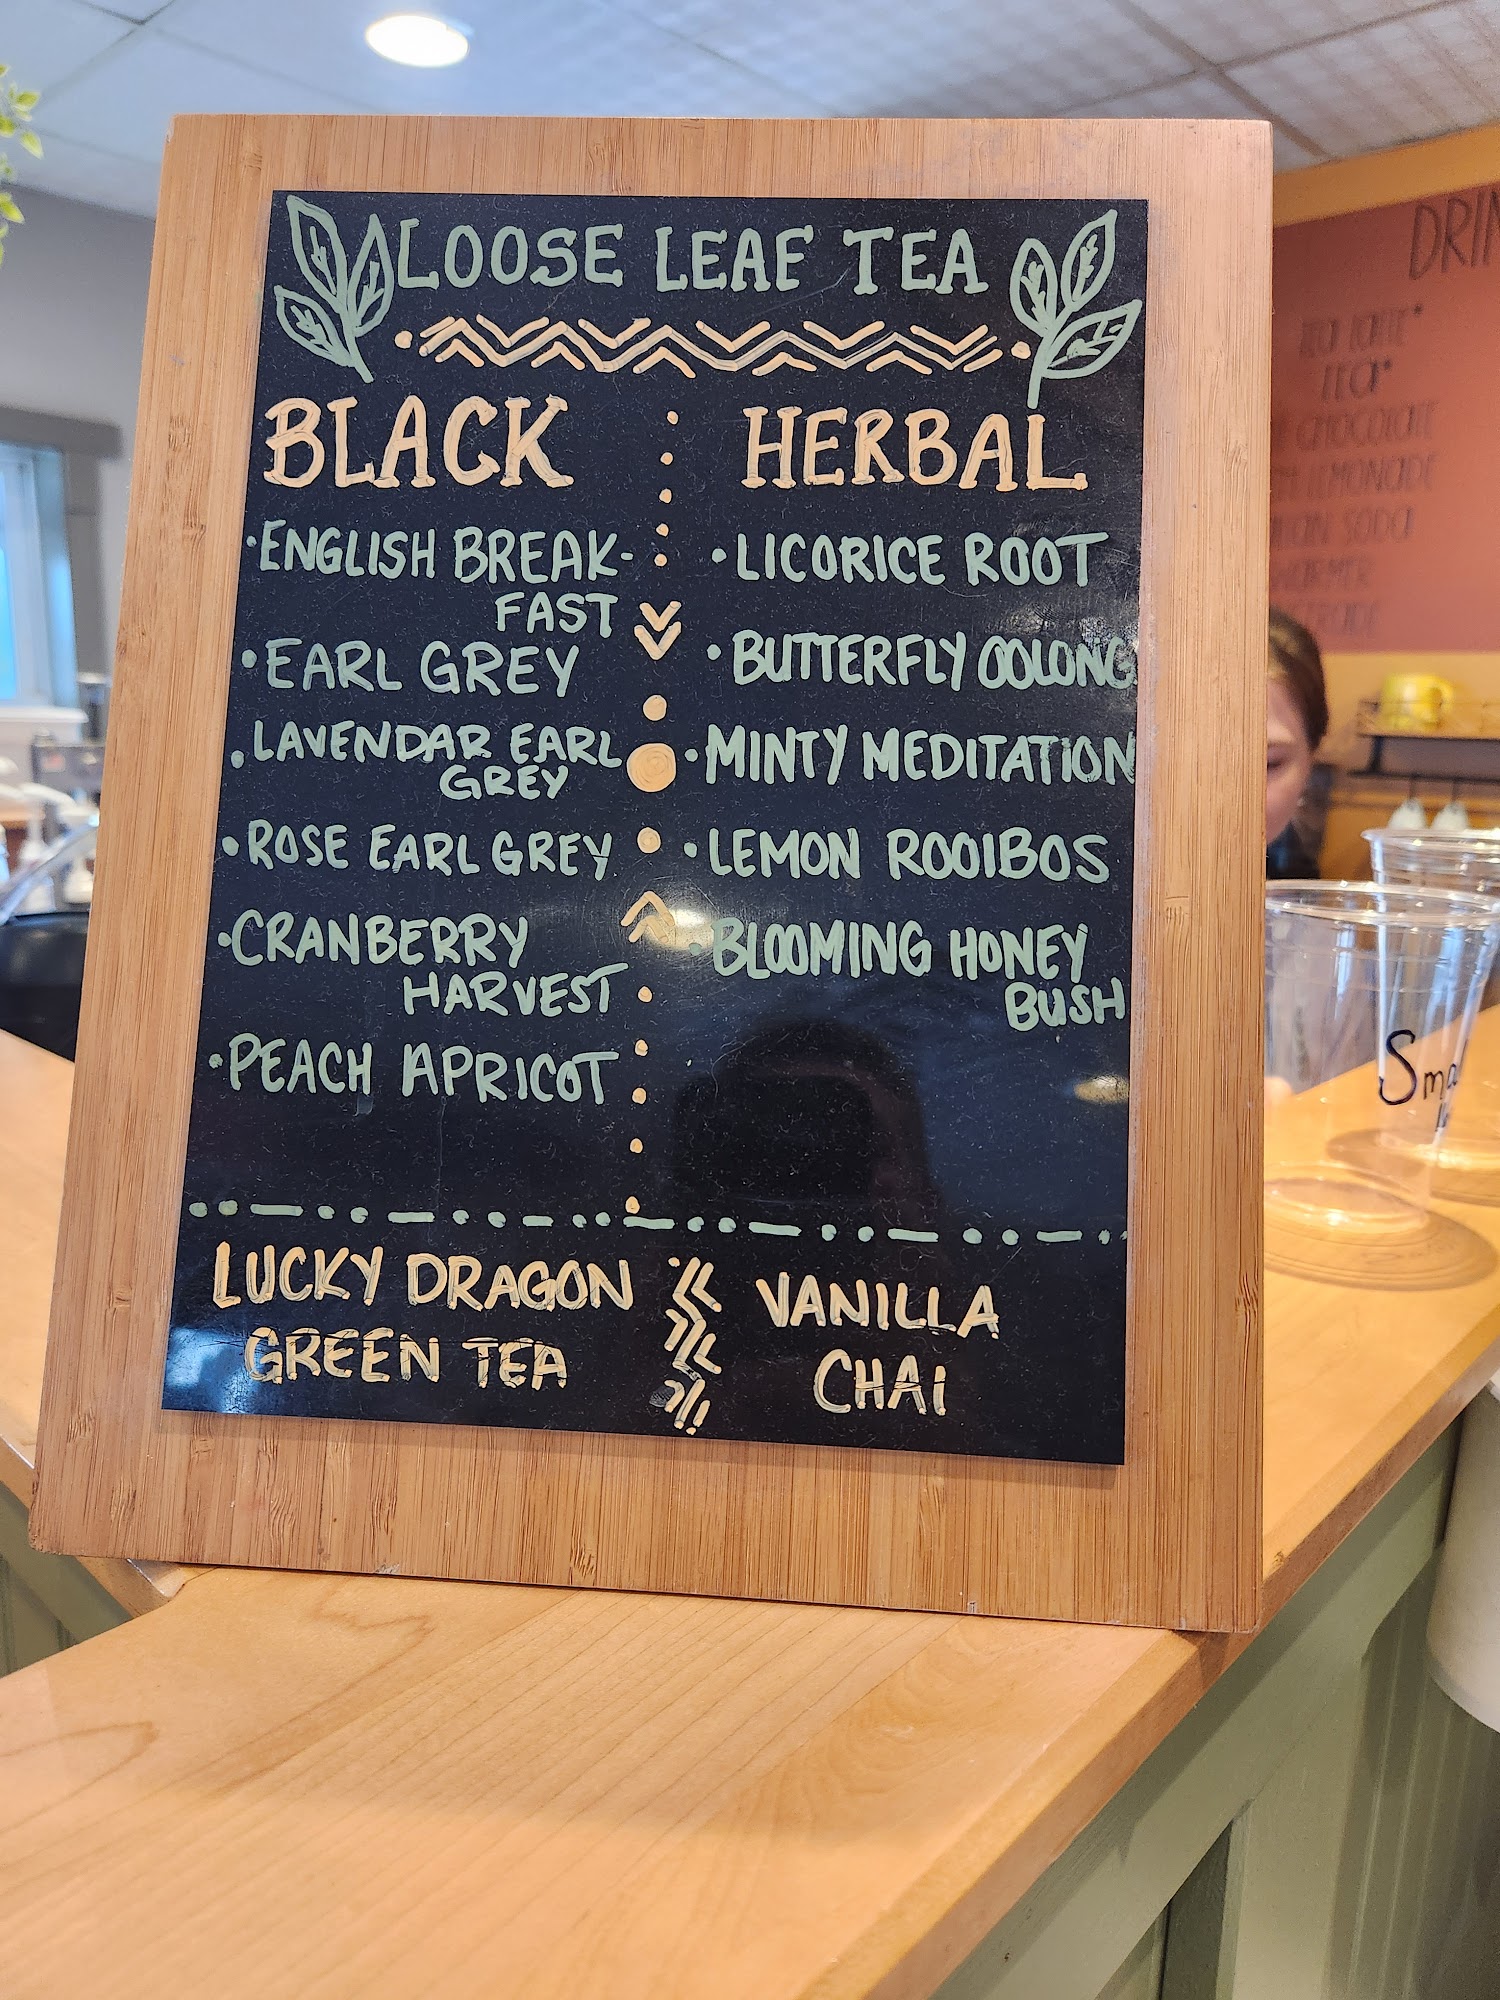 LOOSE LEAF TEA
BLACK
• ENGLISH BREAK-
FAST
• EARL GREY
• LAVENDAR EARL
GREY
• ROSE EARL GREY
• CRANBERRY
HARVEST
• PEACH APRICOT
HERBAL
• LICORICE ROOT
• BUTTERFLY OOLONG
• MINTY MEDITATION
• LEMON ROOIBOS
• BLOOMING HONEY
BUSH
LUCKY DRAGON
GREEN TEA
VANILLA
CHAI
CHOCOLATE
LEMONADE
SODA